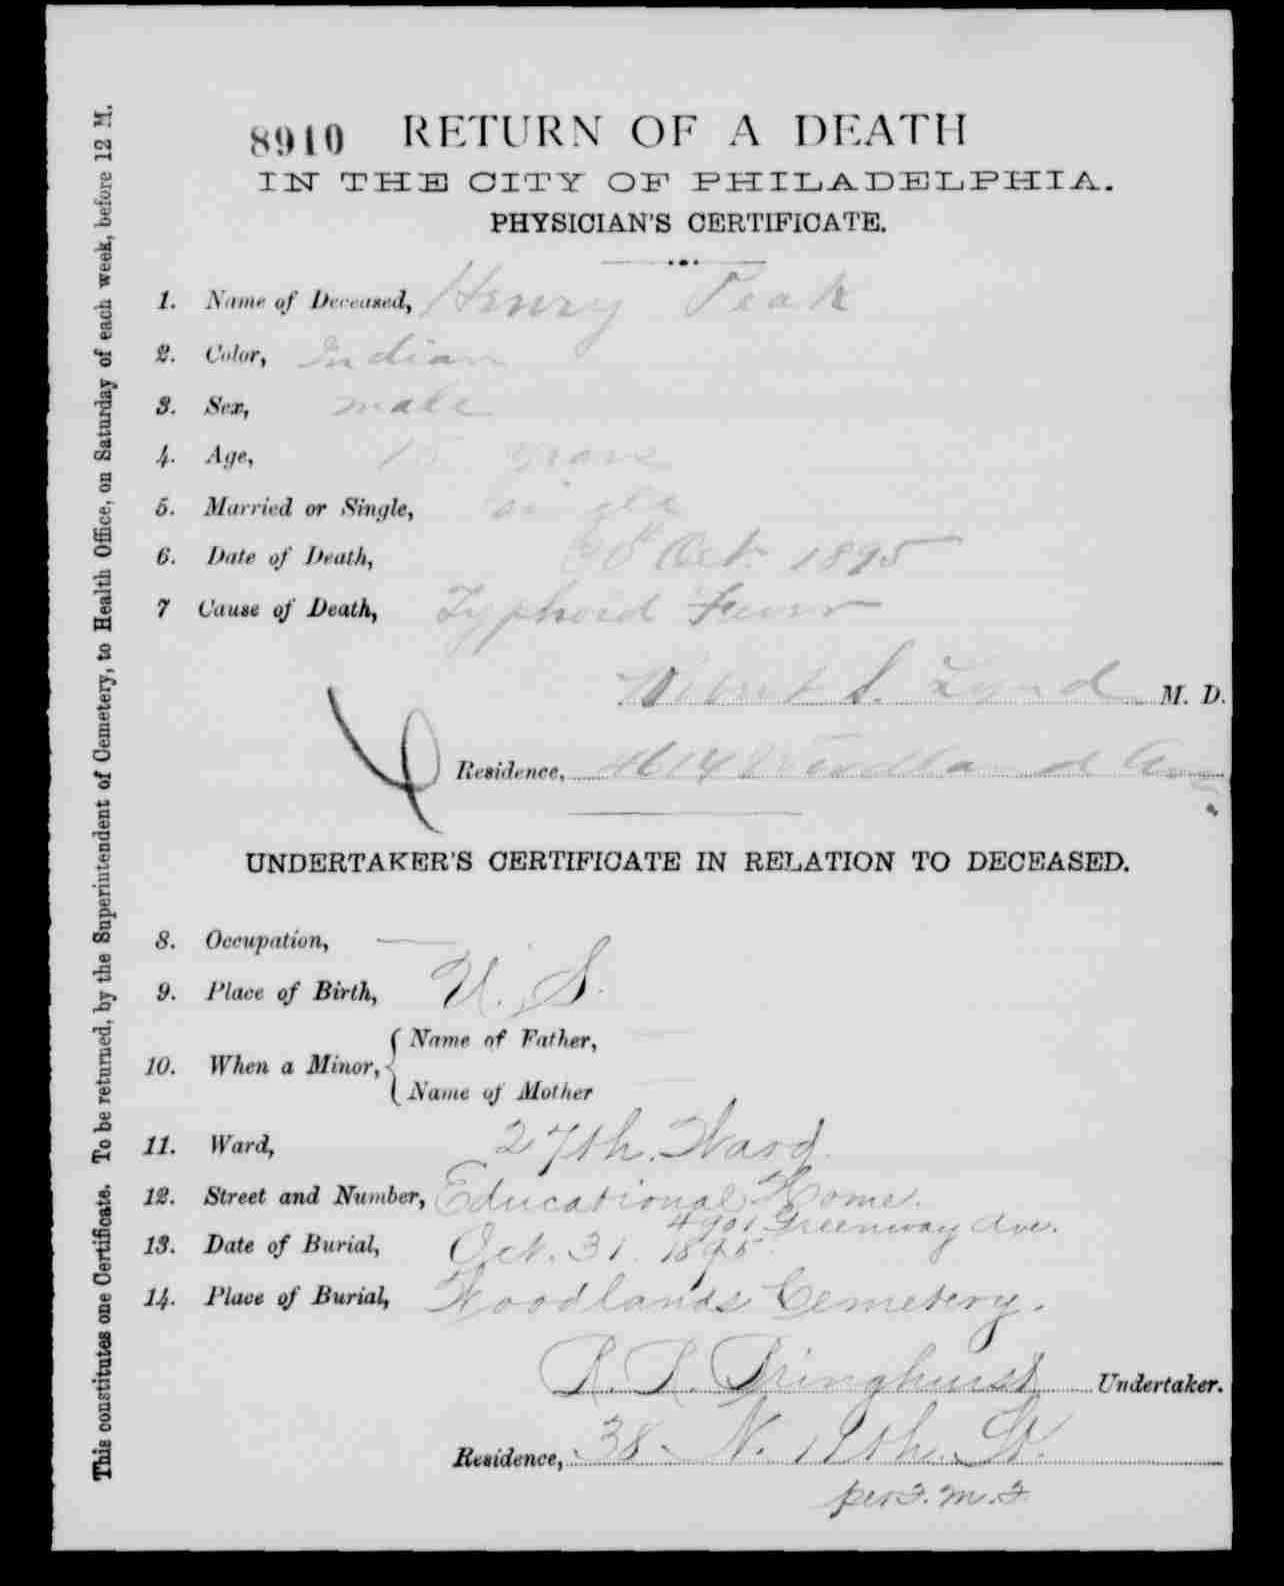 8910 RETURN OF A DEATH
IN THE CITY OF PHILADELPHIA.
PHYSICIAN'S CERTIFICATE.
1. Name of Deceased, Henry Peak
2. Color, Indian
3. Sex, male
4. Age, 15 years
5. Married or Single, single
6. Date of Death, Oct. 1895
7 Cause of Death, Typhoid Fever
S. M. D.
Residence, 4614 Woodland Ave
UNDERTAKER'S CERTIFICATE IN RELATION TO DECEASED.
8. Occupation, —
9. Place of Birth, U. S.
10. When a Minor, { Name of Father, —
Name of Mother —
11. Ward, 27th. Ward
12. Street and Number, Educational Home.
4901 Greenway Ave.
13. Date of Burial, Oct. 31. 1895
14. Place of Burial, Woodlands Cemetery.
R. R. Bringhurst Undertaker.
Residence, 38 N. 19th. St.
per F. M. F.
This constitutes one Certificate. To be returned, by the Superintendent of Cemetery, to Health Office, on Saturday of each week, before 12 M.